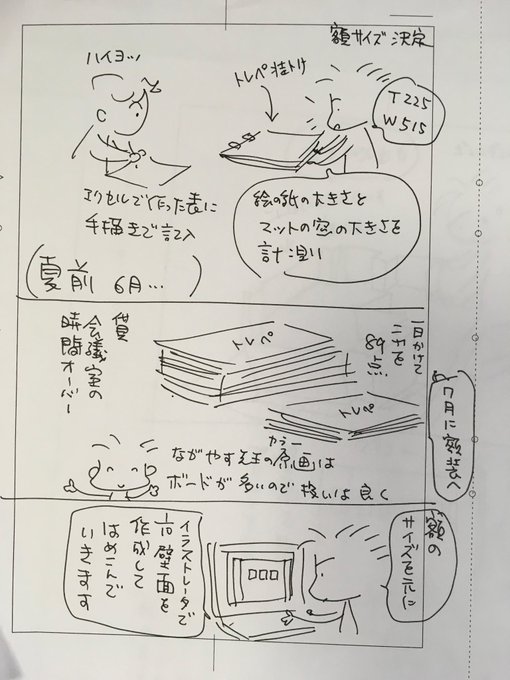 額サイズ決定
T225
W515
トレペ掛け
ハイヨッ
絵の紙の大きさと
マットの窓の大きさを
計測り
エクセルで作った表に
手描きで記入
(夏前 6月…)
一日かけて
89点
トレペ
トレペ
貸
会議室の
時間オーバー
ながやす先生の原画は
カラー
ボードが多いので扱いは良く
7月に額装へ
額の
サイズを元に
イラストレータで
壁面を
作成して
はめこんで
いきます